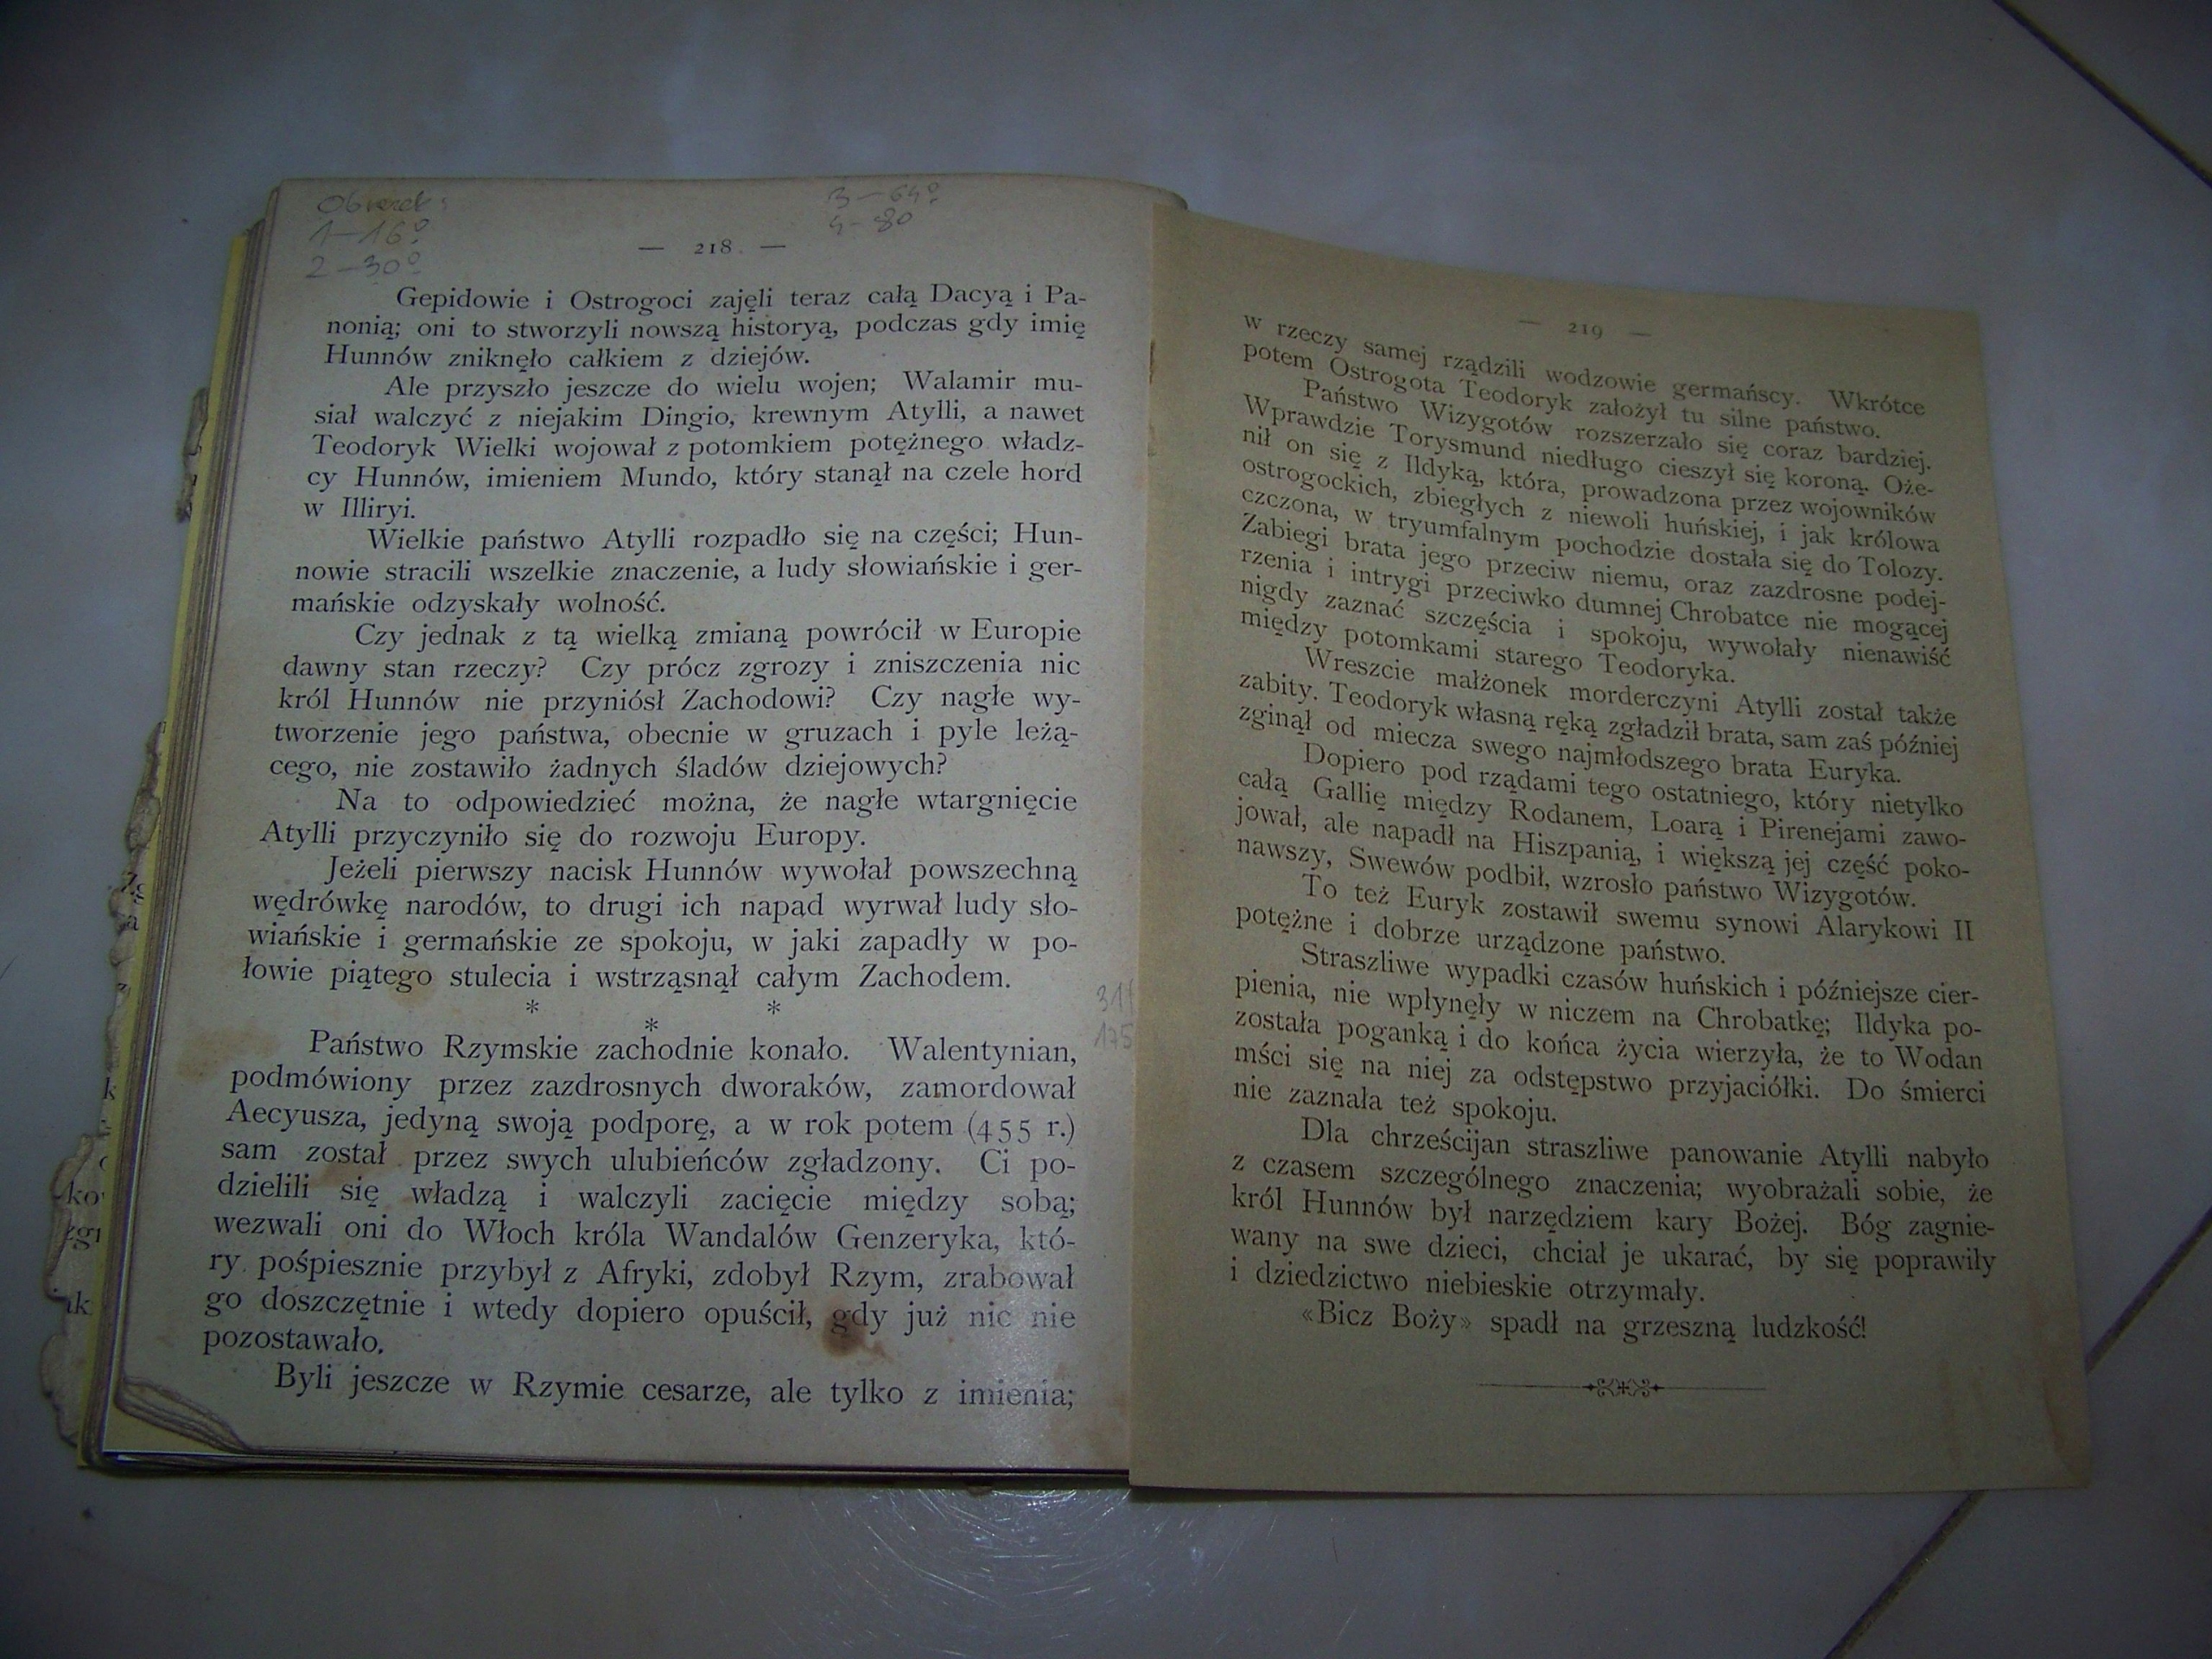 1—16º
2—30º
3—64º
4—80
— 218 —
Gepidowie i Ostrogoci zajęli teraz całą Dacyą i Pa-
nonią; oni to stworzyli nowszą historyą, podczas gdy imię
Hunnów zniknęło całkiem z dziejów.
Ale przyszło jeszcze do wielu wojen; Walamir mu-
siał walczyć z niejakim Dingio, krewnym Atylli, a nawet
Teodoryk Wielki wojował z potomkiem potężnego władz-
cy Hunnów, imieniem Mundo, który stanął na czele hord
w Illiryi.
Wielkie państwo Atylli rozpadło się na części; Hun-
nowie stracili wszelkie znaczenie, a ludy słowiańskie i ger-
mańskie odzyskały wolność.
Czy jednak z tą wielką zmianą powrócił w Europie
dawny stan rzeczy? Czy prócz zgrozy i zniszczenia nic
król Hunnów nie przyniósł Zachodowi? Czy nagłe wy-
tworzenie jego państwa, obecnie w gruzach i pyle leżą-
cego, nie zostawiło żadnych śladów dziejowych?
Na to odpowiedzieć można, że nagłe wtargnięcie
Atylli przyczyniło się do rozwoju Europy.
Jeżeli pierwszy nacisk Hunnów wywołał powszechną
wędrówkę narodów, to drugi ich napad wyrwał ludy sło-
wiańskie i germańskie ze spokoju, w jaki zapadły w po-
łowie piątego stulecia i wstrząsnął całym Zachodem.
* * *
Państwo Rzymskie zachodnie konało. Walentynian,
podmówiony przez zazdrosnych dworaków, zamordował
Aecyusza, jedyną swoją podporę, a w rok potem (455 r.)
sam został przez swych ulubieńców zgładzony. Ci po-
dzielili się władzą i walczyli zacięcie między sobą;
wezwali oni do Włoch króla Wandalów Genzeryka, któ-
ry pośpiesznie przybył z Afryki, zdobył Rzym, zrabował
go doszczętnie i wtedy dopiero opuścił, gdy już nic nie
pozostawało.
Byli jeszcze w Rzymie cesarze, ale tylko z imienia;
— 219 —
w rzeczy samej rządzili wodzowie germańscy. Wkrótce
potem Ostrogota Teodoryk założył tu silne państwo.
Państwo Wizygotów rozszerzało się coraz bardziej.
Wprawdzie Torysmund niedługo cieszył się koroną. Oże-
nił on się z Ildyką, która, prowadzona przez wojowników
ostrogockich, zbiegłych z niewoli huńskiej, i jak królowa
czczona, w tryumfalnym pochodzie dostała się do Tolozy.
Zabiegi brata jego przeciw niemu, oraz zazdrosne podej-
rzenia i intrygi przeciwko dumnej Chrobatce nie mogącej
nigdy zaznać szczęścia i spokoju, wywołały nienawiść
między potomkami starego Teodoryka.
Wreszcie małżonek morderczyni Atylli został także
zabity. Teodoryk własną ręką zgładził brata, sam zaś później
zginął od miecza swego najmłodszego brata Euryka.
Dopiero pod rządami tego ostatniego, który nietylko
całą Gallię między Rodanem, Loarą i Pirenejami zawo-
jował, ale napadł na Hiszpanią, i większą jej część poko-
nawszy, Swewów podbił, wzrosło państwo Wizygotów.
To też Euryk zostawił swemu synowi Alarykowi II
potężne i dobrze urządzone państwo.
Straszliwe wypadki czasów huńskich i późniejsze cier-
pienia, nie wpłynęły w niczem na Chrobatkę; Ildyka po-
została poganką i do końca życia wierzyła, że to Wodan
mści się na niej za odstępstwo przyjaciółki. Do śmierci
nie zaznała też spokoju.
Dla chrześcijan straszliwe panowanie Atylli nabyło
z czasem szczególnego znaczenia; wyobrażali sobie, że
król Hunnów był narzędziem kary Bożej. Bóg zagnie-
wany na swe dzieci, chciał je ukarać, by się poprawiły
i dziedzictwo niebieskie otrzymały.
«Bicz Boży» spadł na grzeszną ludzkość!